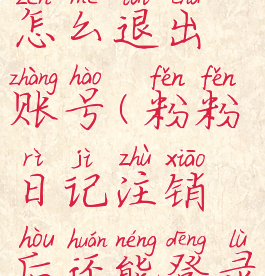 zěn me tuì chū
怎么退出
zhàng hào fěn fěn
账号(粉粉
rì jì zhù xiāo
日记注销
hòu huán néng dēng lù
后还能登录